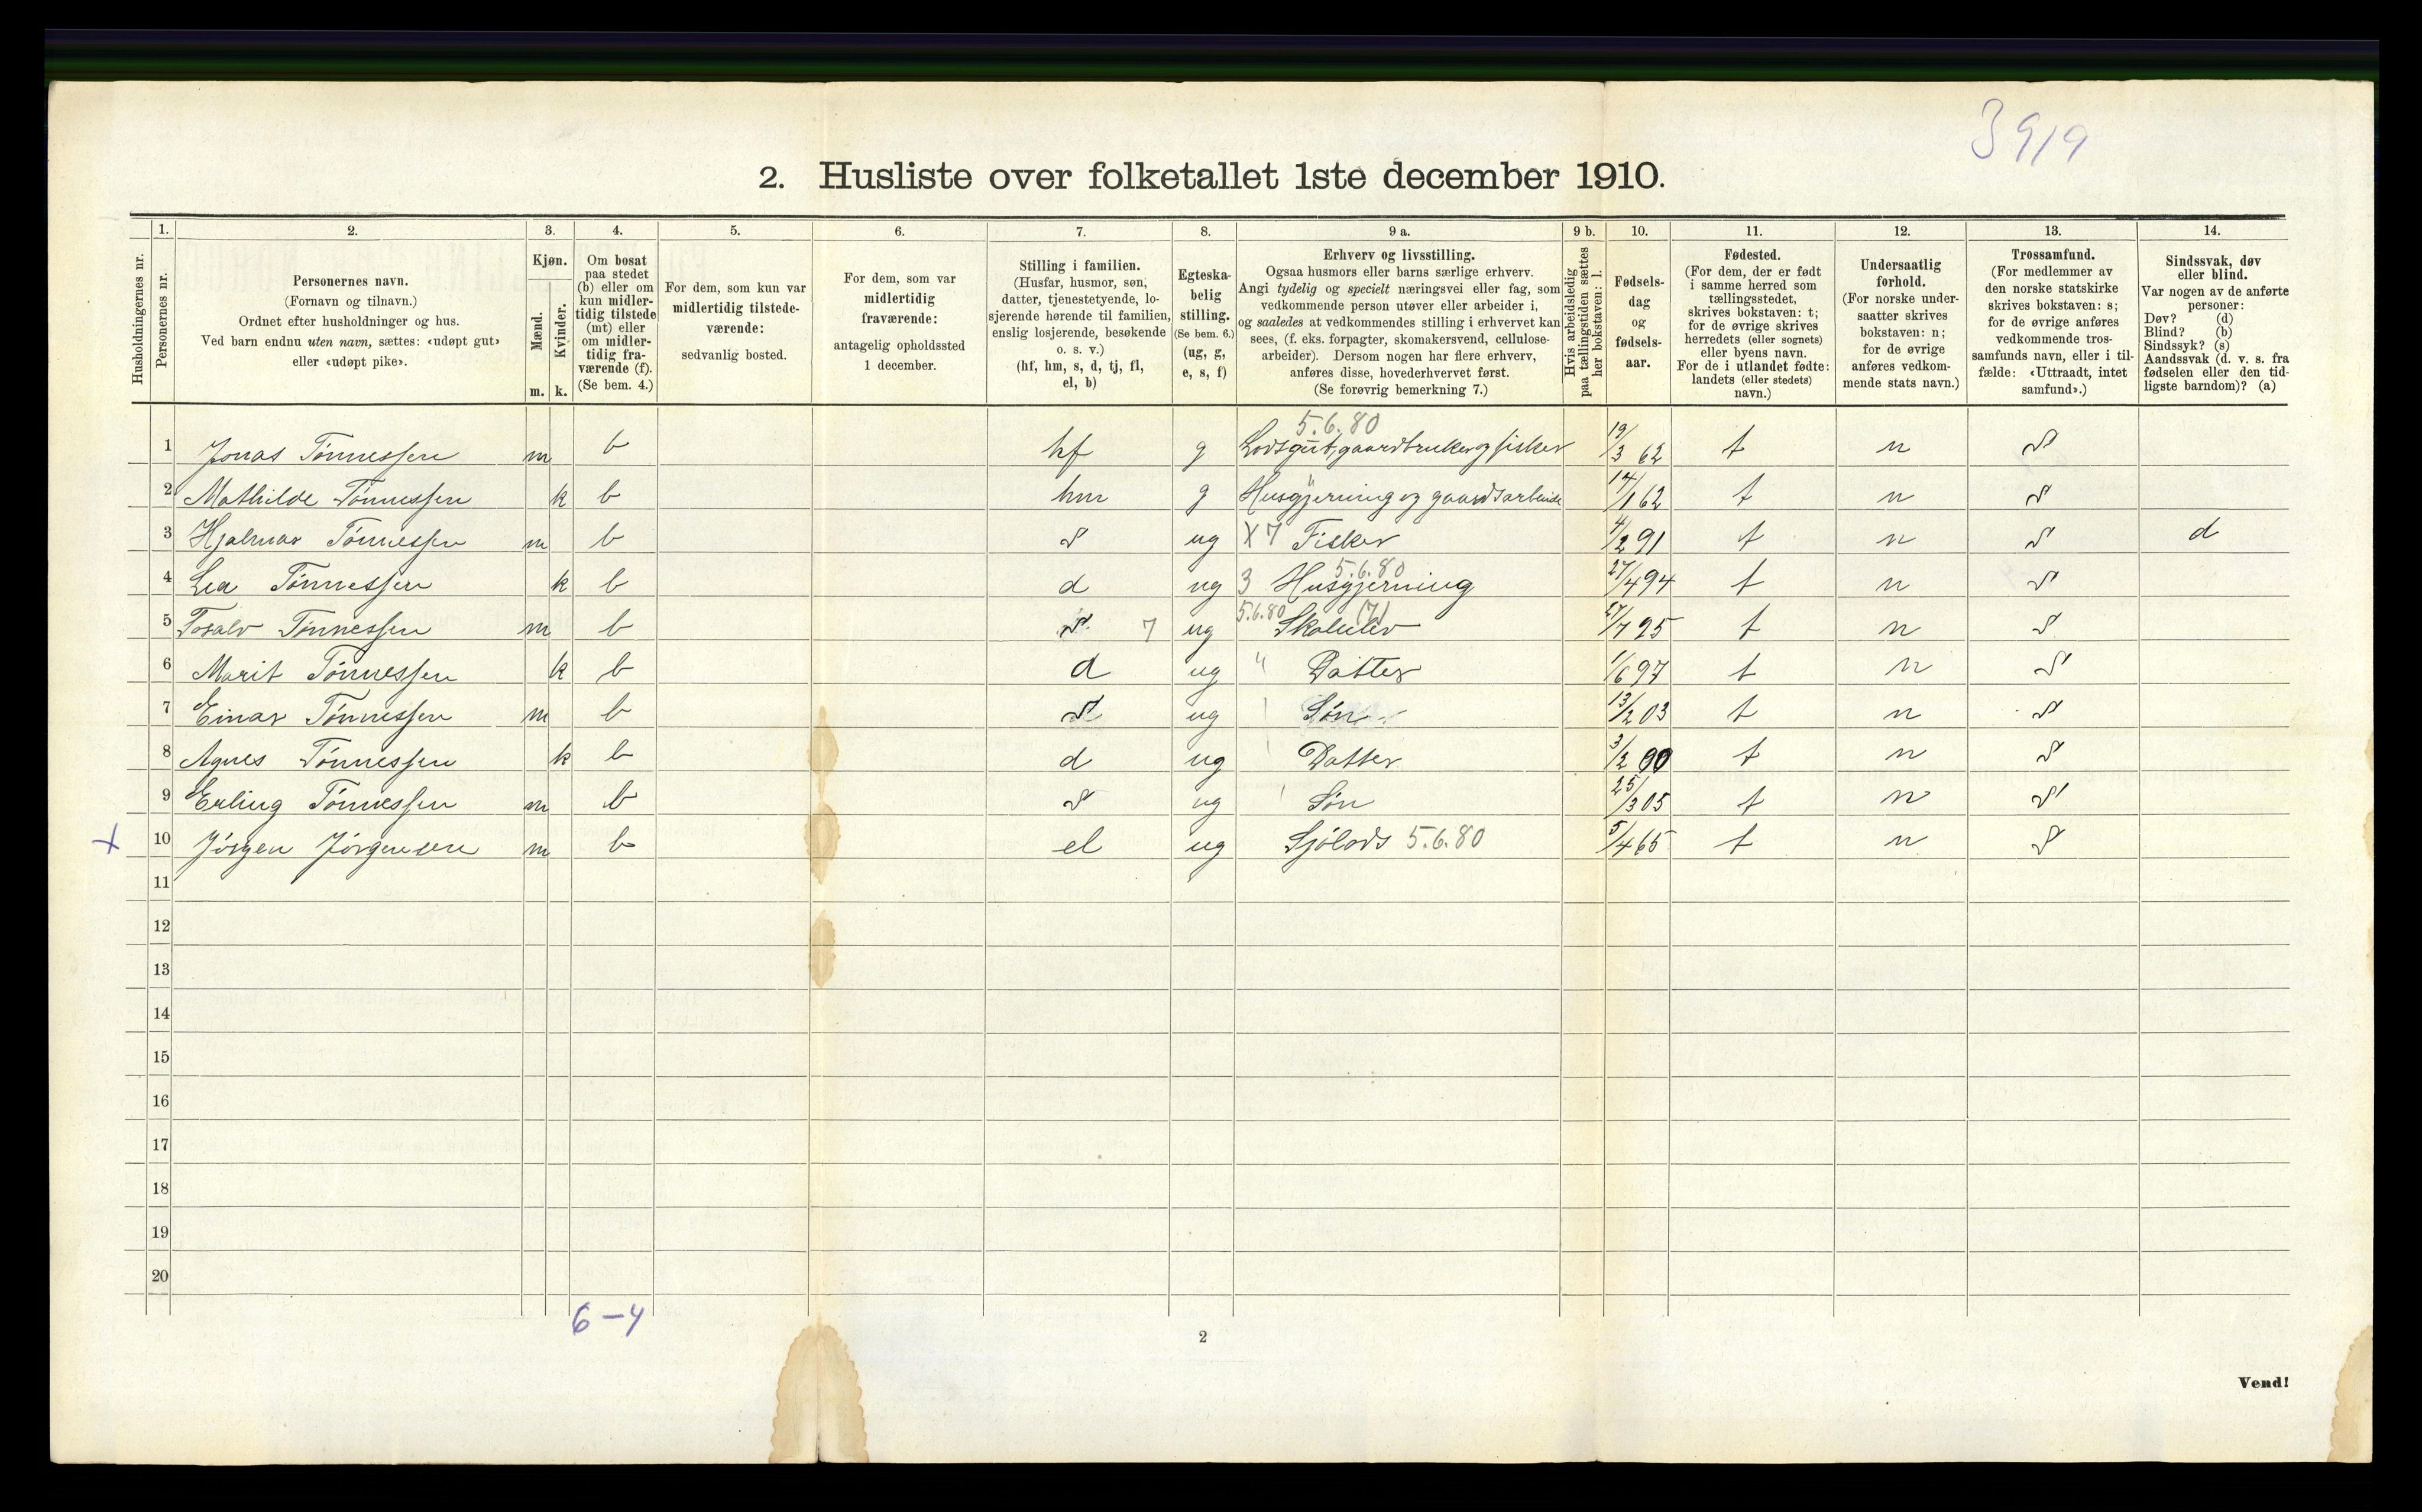 3919
2. Husliste over folketallet 1ste december 1910.
1. 2. 3. 4. 5. 6. 7. 8. 9 a. 9 b. 10. 11. 12. 13. 14.
Husholdningernes nr.
Personernes nr.
Personernes navn.
(Fornavn og tilnavn.)
Ordnet efter husholdninger og hus.
Ved barn endnu uten navn, sættes: «udøpt gut»
eller «udøpt pike».
Kjøn.
Mænd.
Kvinder.
m. k.
Om bosat
paa stedet
(b) eller om
kun midler-
tidig tilstede
(mt) eller
om midler-
tidig fra-
værende (f).
(Se bem. 4.)
For dem, som kun var
midlertidig tilstede-
værende:
sedvanlig bosted.
For dem, som var
midlertidig
fraværende:
antagelig opholdssted
1 december.
Stilling i familien.
(Husfar, husmor, søn,
datter, tjenestetyende, lo-
sjerende hørende til familien,
enslig losjerende, besøkende
o. s. v.)
(hf, hm, s, d, tj, fl,
el, b)
Egteska-
belig
stilling.
(Se bem. 6.)
(ug, g,
e, s, f)
Erhverv og livsstilling.
Ogsaa husmors eller barns særlige erhverv.
Angi tydelig og specielt næringsvei eller fag, som
vedkommende person utøver eller arbeider i,
og saaledes at vedkommendes stilling i erhvervet kan
sees, (f. eks. forpagter, skomakersvend, cellulose-
arbeider). Dersom nogen har flere erhverv,
anføres disse, hovederhvervet først.
(Se forøvrig bemerkning 7.)
Hvis arbeidsledig
paa tællingstiden sættes
her bokstaven: l.
Fødsels-
dag
og
fødsels-
aar.
Fødested.
(For dem, der er født
i samme herred som
tællingsstedet,
skrives bokstaven: t;
for de øvrige skrives
herredets (eller sognets)
eller byens navn.
For de i utlandet fødte:
landets (eller stedets)
navn.)
Undersaatlig
forhold.
(For norske under-
saatter skrives
bokstaven: n;
for de øvrige
anføres vedkom-
mende stats navn.)
Trossamfund.
(For medlemmer av
den norske statskirke
skrives bokstaven: s;
for de øvrige anføres
vedkommende tros-
samfunds navn, eller i til-
fælde: «Uttraadt, intet
samfund».)
Sindssvak, døv
eller blind.
Var nogen av de anførte
personer:
Døv? (d)
Blind? (b)
Sindssyk? (s)
Aandssvak (d. v. s. fra
fødselen eller den tid-
ligste barndom)? (a)
5.6.80
1 Jonas Tønnessen m b hf g Lodsgut, gaardbruker og fisker 19/3 62 t n s
2 Mathilde Tønnessen k b hm g Husgjerning og gaardsarbeide 14/1 62 t n s
3 Hjalmar Tønnessen m b s ug X 7 Fisker 4/2 91 t n s d
5.6.80
4 Lea Tønnessen k b d ug 3 Husgjerning 27/4 94 t n s
5.6.80 (7)
5 Tosalv Tønnessen m b s 7 ug Skoleelev 27/7 95 t n s
6 Marit Tønnessen k b d ug " Datter 1/6 97 t n s
7 Einar Tønnessen m b s ug Søn 13/2 03 t n s
8 Agnes Tønnessen k b d ug Datter 3/2 90 t n s
9 Erling Tønnessen m b s ug Søn 25/3 05 t n s
x 10 Jörgen Jörgensen m b el ug Sjölods 5.6.80 5/4 65 t n s
11
12
13
14
15
16
17
18
19
20
6-4
2
Vend!